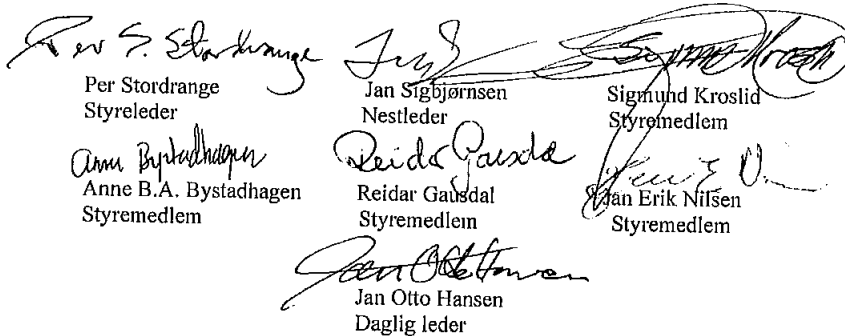 Per S. Stordrange
Per Stordrange
Styreleder
Jan Sigbjørnsen
Nestleder
Sigmund Kroslid
Sigmund Kroslid
Styremedlem
Anne Bystadhagen
Anne B.A. Bystadhagen
Styremedlem
Reidar Gausdal
Reidar Gausdal
Styremedlem
Jan Erik Nilsen
Styremedlem
Jan Otto Hansen
Jan Otto Hansen
Daglig leder